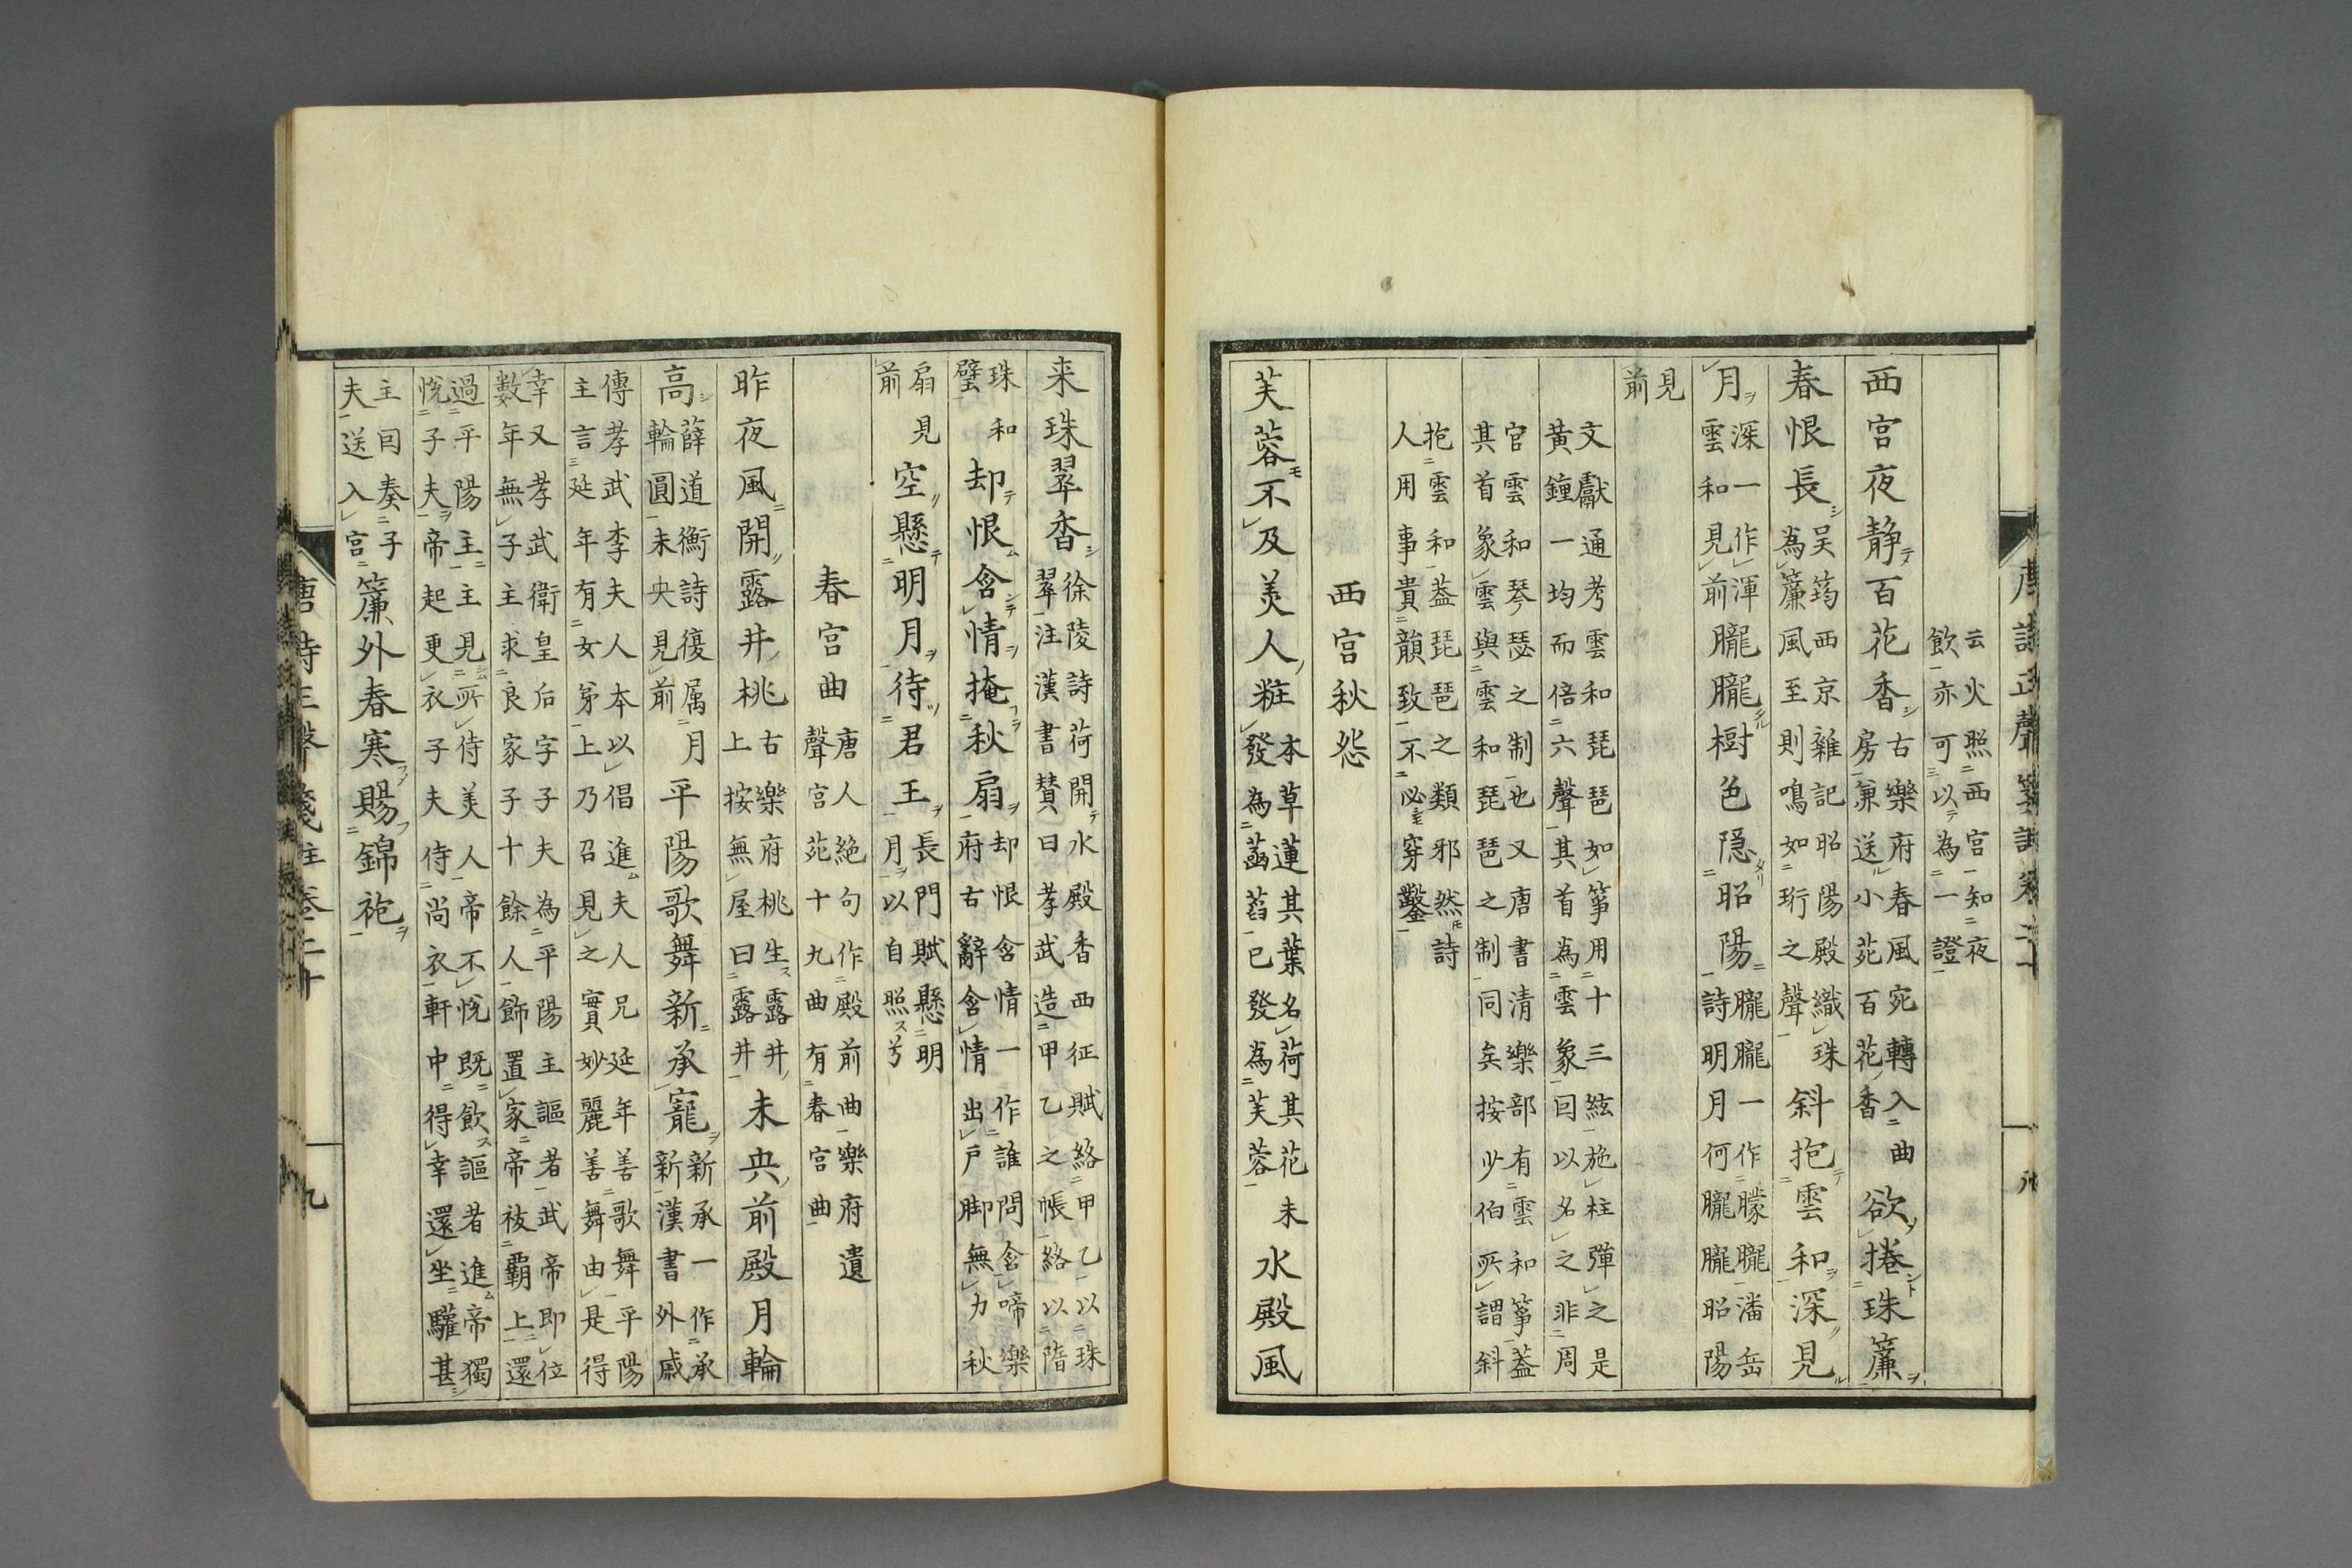 云火照西宮知夜
飲亦可以為一證
西宮夜静百花香
古樂府春風宛轉入曲
房兼送小苑百花香
欲捲珠簾
春恨長
吴筠西京雜記昭陽殿織珠
為簾風至則鳴如珩之聲
斜抱雲和深見
月
深一作渾
雲和見前
朧朧樹色隠昭陽
朧朧一作朦朧潘岳
詩明月何朧朧昭陽
見
前
文獻通考雲和琵琶如箏用十三絃施柱彈之是
黃鐘一均而倍六聲其首為雲象因以名之非周
官雲和琴瑟之制也又唐書清樂部有雲和箏蓋
其首象雲與雲和琵琶之制同矣按少伯所謂斜
抱雲和蓋琵琶之類邪然詩
人用事貴韻致不必穿鑿
西宮秋怨
芙蓉不及美人粧
本草蓮其葉名荷其花未
發為菡萏已發為芙蓉
水殿風
来珠翠香
徐陵詩荷開水殿香西征賦絡甲乙以珠
翠注漢書賛曰孝武造甲乙之帳絡以隋
珠和
璧
却恨含情掩秋扇
却恨含情一作誰問含啼樂
府古辭含情出戶脚無力秋
扇見
前
空懸明月待君王
長門賦懸明
月以自照兮
春宮曲
唐人絶句作殿前曲樂府遺
聲宮苑十九曲有春宮曲
昨夜風開露井桃
古樂府桃生露井
上按無屋曰露井
未央前殿月輪
高
薛道衡詩復属月
輪圓未央見前
平陽歌舞新承寵
新承一作承
新漢書外戚
傳孝武李夫人本以倡進夫人兄延年善歌舞平陽
主言延年有女弟上乃召見之實妙麗善舞由是得
幸又孝武衛皇后字子夫為平陽主謳者武帝即位
數年無子主求良家子十餘人飾置家帝祓覇上還
過平陽主主見所侍美人帝不悅既飲謳者進帝獨
悅子夫帝起更衣子夫侍尚衣軒中得幸還坐驩甚
主因奏子
夫送入宮
簾外春寒賜錦袍
唐詩正聲箋註卷二十
九